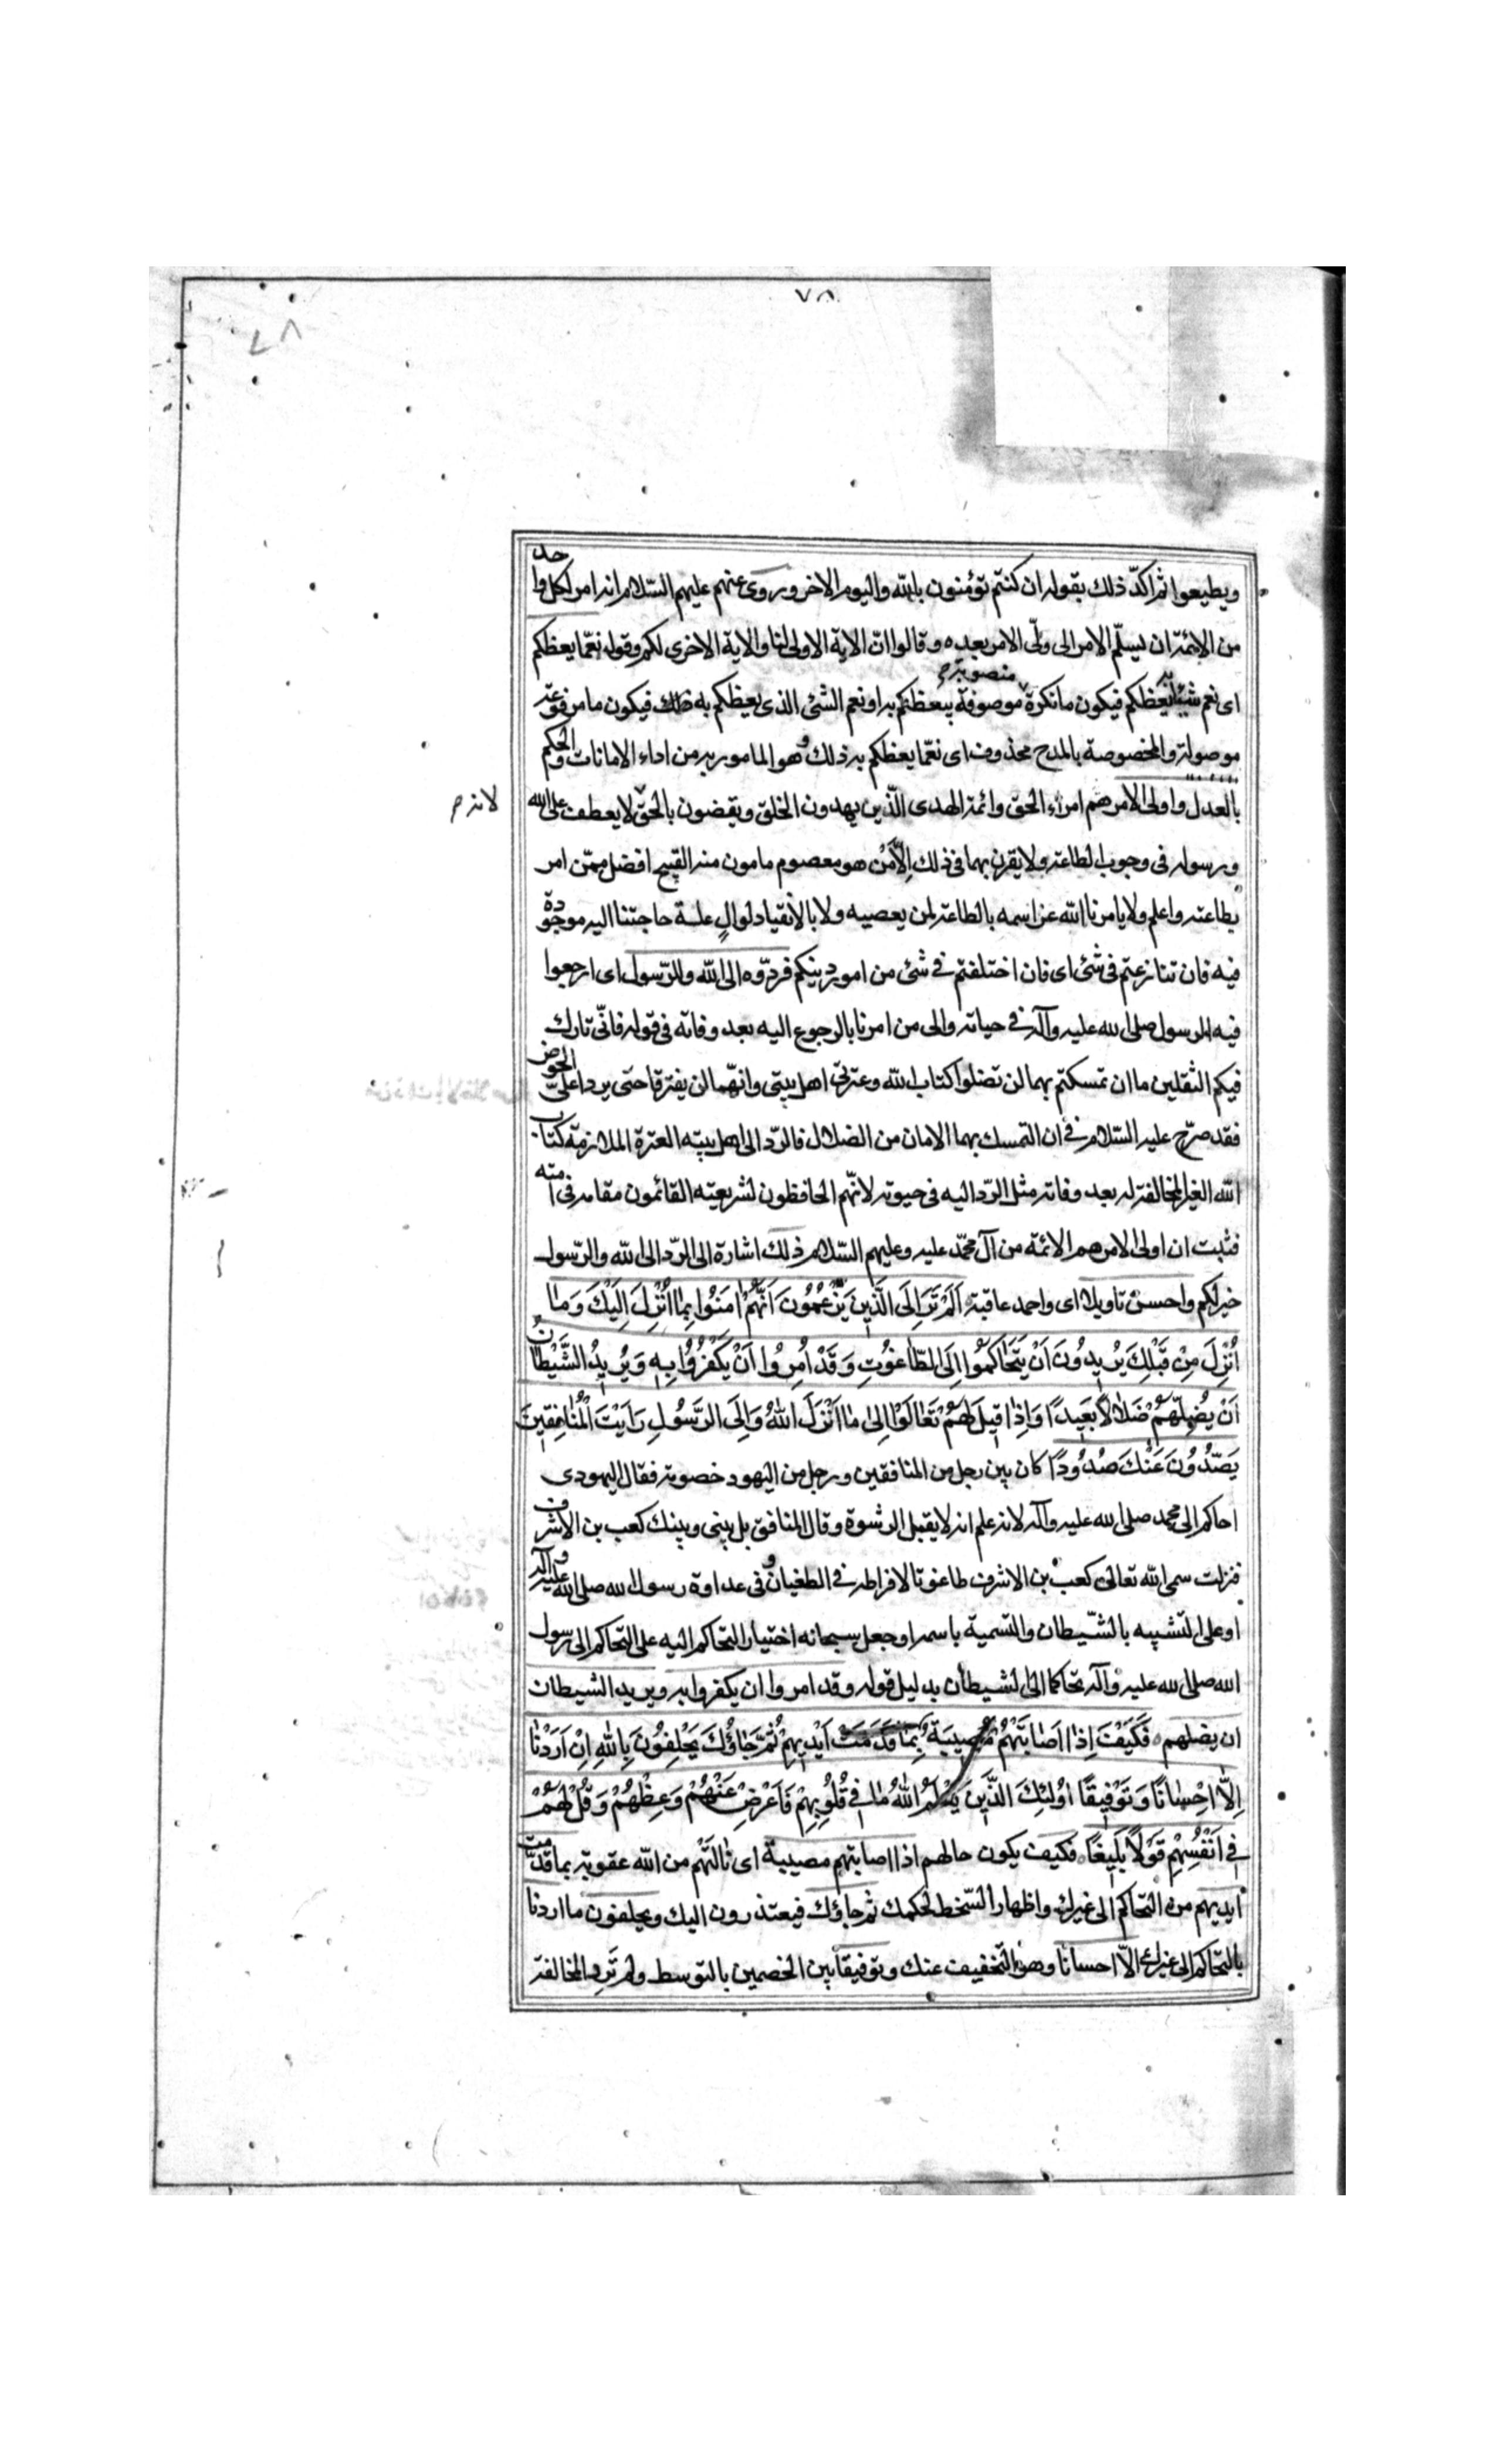 ٧٨
٨٧
ويطيعوا ثم اكدّ ذلك بقوله ان كنتم تؤمنون بالله واليوم الاخر وروى عنهم عليهم السّلام انه امر لكل واحد
من الائمة ان يسلّم الامر الى ولّى الامر بعده وقالوا انّ الاية الاولى لنا والاية الاخرى لكم وقوله نعمّا يعظكم
اى نعم شيئا يعظكم به فيكون ما نكرة منصوبة موصوفة بيعظكم به او نعم الشئ الذى يعظكم به فيكون ما مرفوعة
موصولة والمخصوصة بالمدح محذوف اى نعمّا يعظكم به ذلك وهو المامور به من اداء الامانات والحكم
بالعدل واولى الامر هم امراء الحق وائمة الهدى الّذين يهدون الخلق ويقضون بالحقّ لا يعطف على الله
لانه
ورسوله فى وجوب الطاعة ولا يقرن بهما فى ذلك اِلّا مَنْ هو معصوم مامون منه القبيح افضل ممّن امر
بطاعته واعلم ولا يامرنا الله عز اسمه بالطاعة لمن يعصيه ولا بالانقياد لوالٍ علة حاجتنا اليه موجودة
فيه فان تنازعتم فى شئ اى فان اختلفتم فى شئ من امور دينكم فردّوه الى الله والرّسول اى ارجعوا
فيه الى الرسول صلى الله عليه وآله فى حياته والى من امرنا بالرجوع اليه بعد وفاته فى قوله فانّى تارك
فيكم الثقلين ما ان تمسكتم بهما لن تضلوا كتاب الله وعترتى اهل بيتى وانهّما لن يفترقا حتى يردا علىّ الحوض
فقد صرّح عليه السّلام فى ان التمسك بهما الامان من الضلال فالردّ الى اهل بيته العترة الملازمة كتاب
الله الغير المخالفة له بعد وفاته مثل الردّ اليه فى حيوته لانهّم الحافظون لشريعته القائمون مقامه فى امته
فثبت ان اولى الامر هم الائمة من آل محمّد عليه وعليهم السّلام ذلك اشارة الى الردّ الى الله والرّسول
خير لكم واحسن تاويلا اى واحمد عاقبة اَلَمْ تَرَ اِلَى الَّذِينَ يَزْعُمُونَ اَنَّهُمْ اٰمَنُوا بِمٰا اُنْزِلَ اِلَيْكَ وَمٰا
اُنْزِلَ مِنْ قَبْلِكَ يُرِيدُونَ اَنْ يَتَحٰاكَمُوا اِلَى الطّٰاغُوتِ وَقَدْ اُمِرُوا اَنْ يَكْفُرُوا بِهِ وَيُرِيدُ الشَّيْطٰانُ
اَنْ يُضِلَّهُمْ ضَلٰالاً بَعِيدًا وَاِذٰا قِيلَ لَهُمْ تَعٰالَوْا اِلىٰ مٰا اَنْزَلَ اللهُ وَاِلَى الرَّسُولِ رَاَيْتَ الْمُنٰافِقِينَ
يَصُدُّونَ عَنْكَ صُدُودًا كان بين رجل من المنافقين ورجل من اليهود خصومة فقال اليهودى
احاكم الى محمد صلى الله عليه وآله لانه علم انه لا يقبل الرشوة وقال المنافق بل بينى وبينك كعب بن الاشرف
فنزلت سمى الله تعالى كعب بن الاشرف طاغوتا لافراطه فى الطغيان وفى عداوة رسول الله صلى الله عليه وآله
او على التشبيه بالشّيطان والتسمية باسمه او جعل سبحانه اختيار التحاكم اليه على التحاكم الى رسول
الله صلى الله عليه وآله تحاكما الى الشيطان بدليل قوله وقد امروا ان يكفروا به ويريد الشيطان
ان يضلهم فَكَيْفَ اِذٰا اَصٰابَتْهُمْ مُصِيبَةٌ بِمٰا قَدَّمَتْ اَيْدِيهِمْ ثُمَّ جٰاؤُكَ يَحْلِفُونَ بِاللهِ اِنْ اَرَدْنٰا
اِلّٰا اِحْسٰانًا وَتَوْفِيقًا اُولٰئِكَ الَّذِينَ يَعْلَمُ اللهُ مٰا فِى قُلُوبِهِمْ فَاَعْرِضْ عَنْهُمْ وَعِظْهُمْ وَقُلْ لَهُمْ
فِى اَنْفُسِهِمْ قَوْلاً بَلِيغًا فكيف يكون حالهم اذا اصابتهم مصيبة اى نٰالَتْهُم من الله عقوبة بما قدّمت
ايديهم من التحاكم الى غيرك واظهار السّخط لحكمك ثم جاؤك فيعتذرون اليك ويحلفون ما اردنا
بالتحاكم الى غيرك الاّ احسانا وهو التخفيف عنك وتوفيقا بين الخصمين بالتوسط ولم نَرِد المخالفة